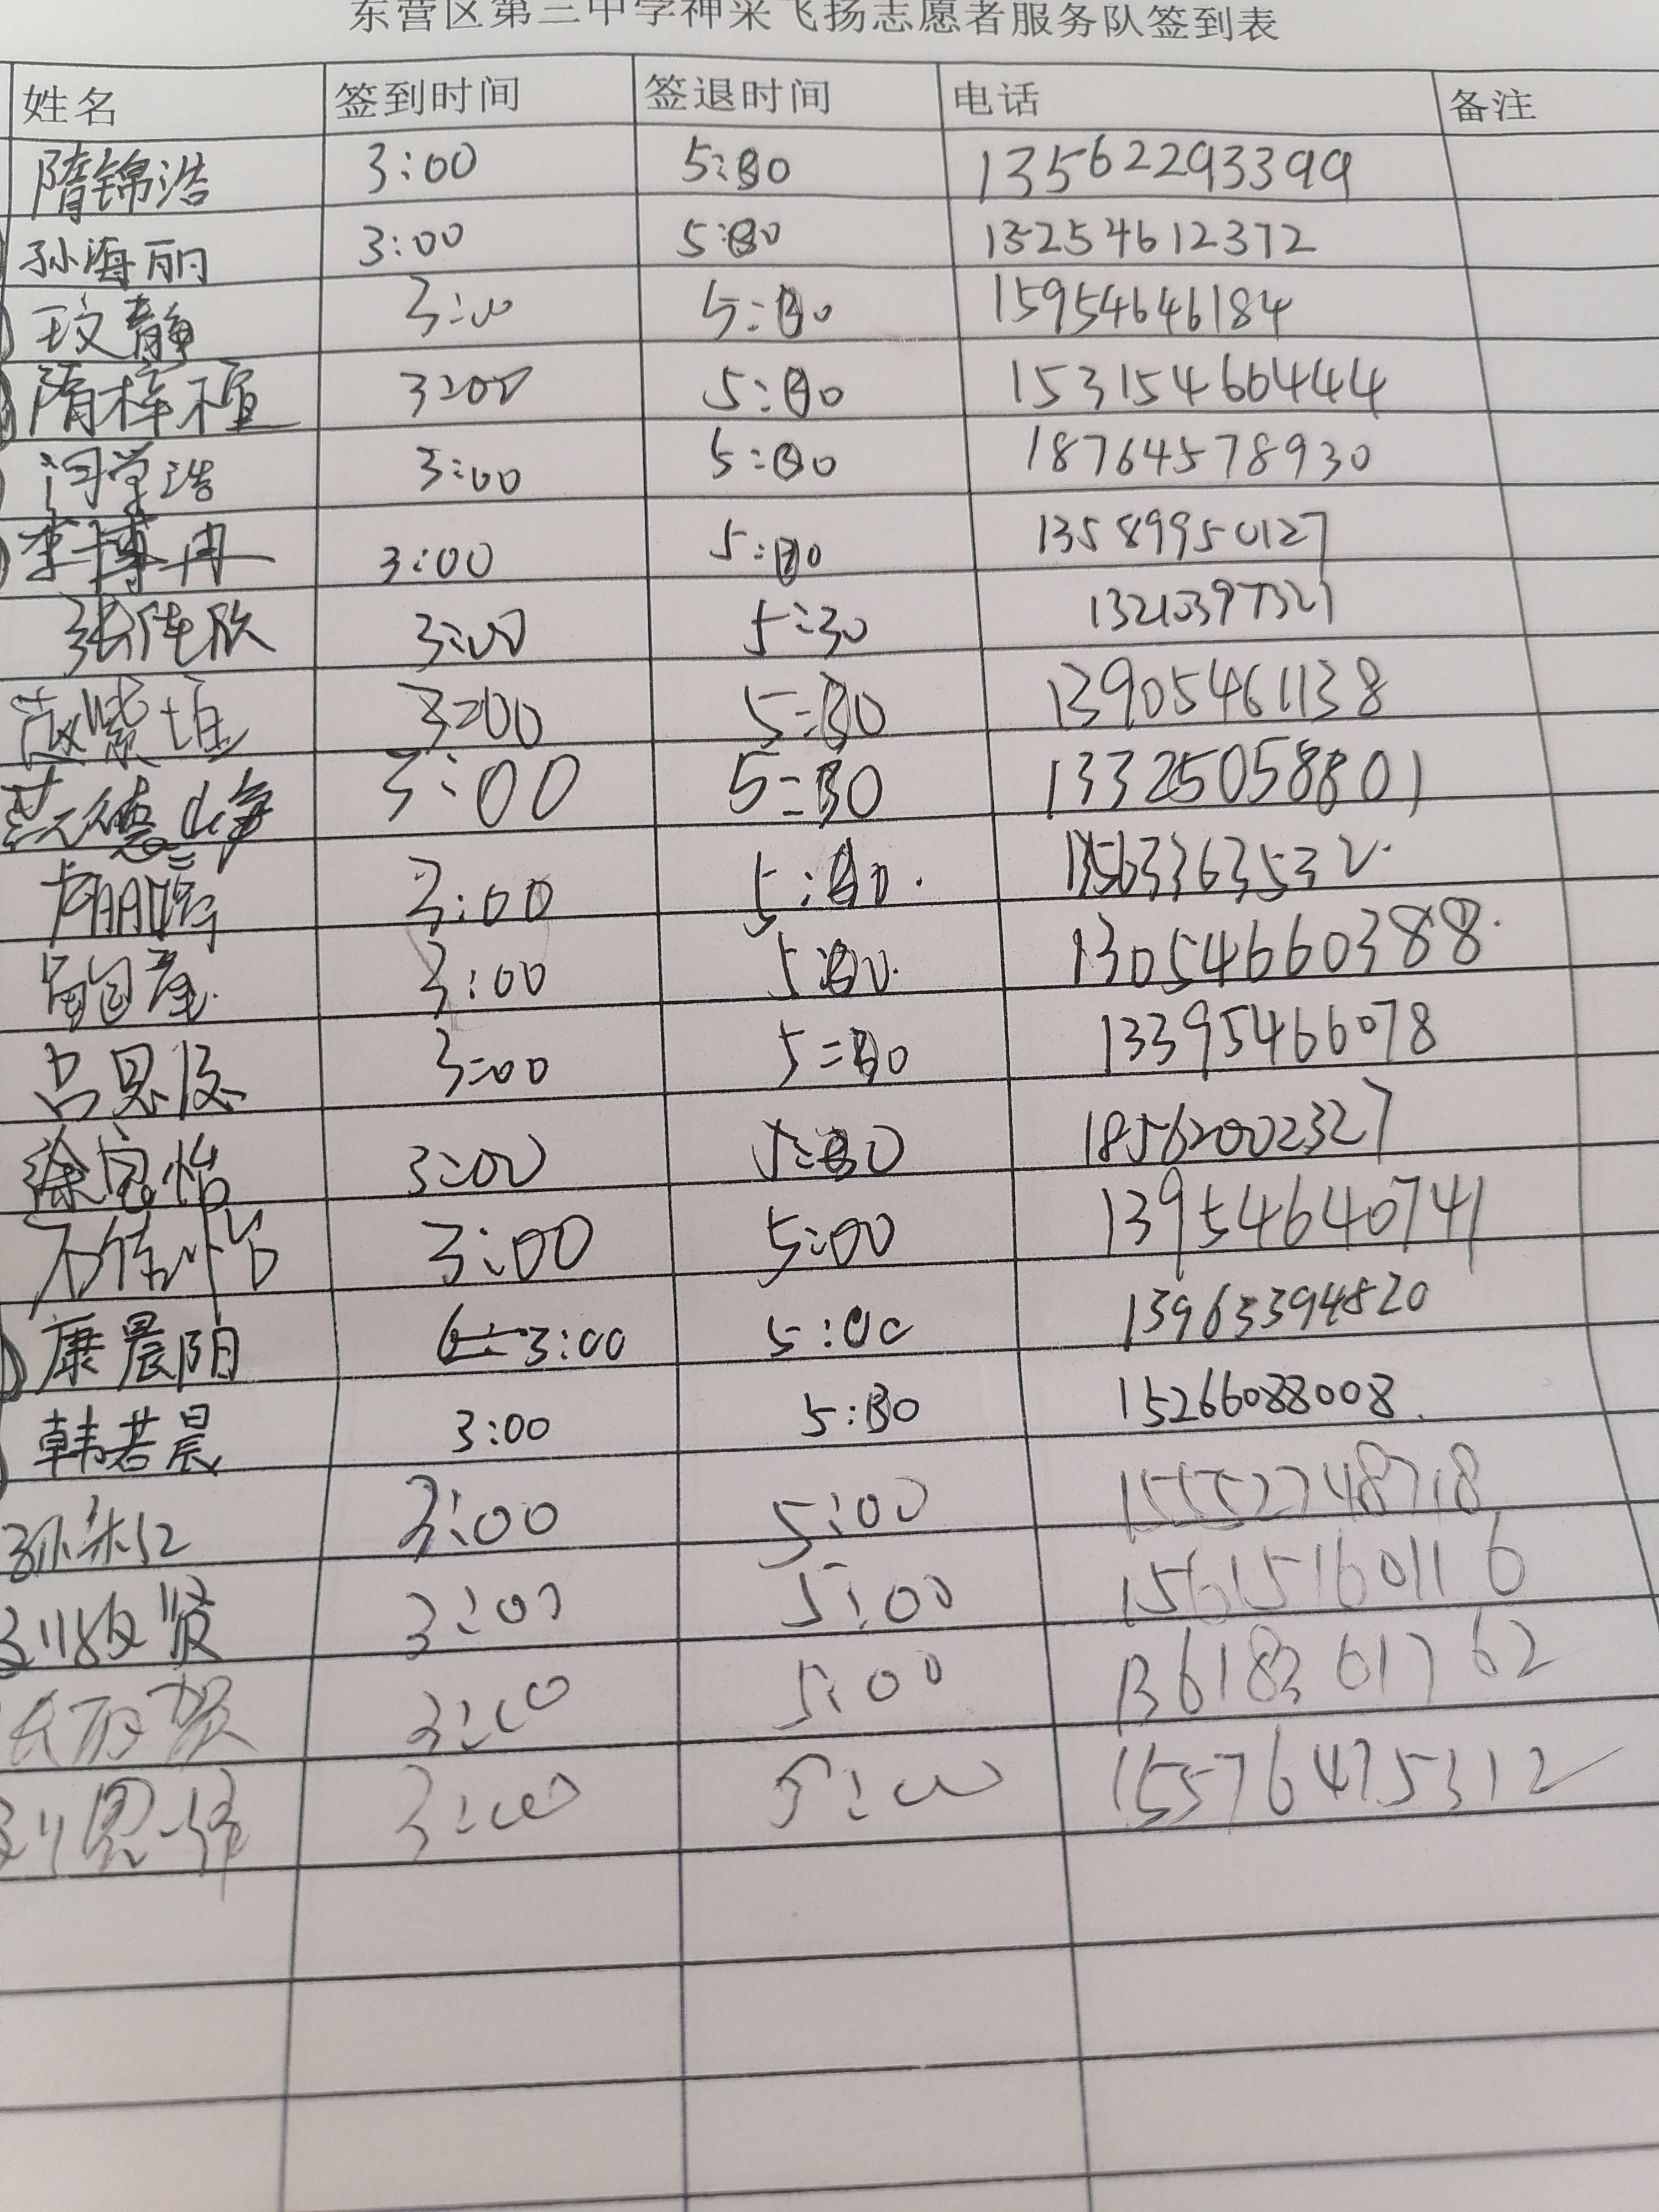 东营区第三中学神采飞扬志愿者服务队签到表
姓名 签到时间 签退时间 电话 备注
隋锦浩 3:00 5:30 13562293399
孙海丽 3:00 5:30 13254612372
玟静 3:00 5:30 15954646184
隋梓楦 3:00 5:30 15315460444
闫学浩 3:00 5:30 18764578930
李博冉 3:00 5:30 13589950127
3:00 5:30
3:00 5:30 13905461138
范德峥 3:00 5:30 13325058801
3:00 5:30 13563363532
3:00 5:30 13054660388
吕思 3:00 5:30 13395466078
徐宸怡 3:00 5:30 18562002327
石 怡 3:00 5:00 13954640741
康晨阳 3:00 5:00 13963394820
韩若晨 3:00 5:30 15266088008
3:00 5:00 15552748718
刘 贤 3:00 5:00 15615160116
3:00 5:00 13618361762
刘恩 3:00 5:00 15576475312